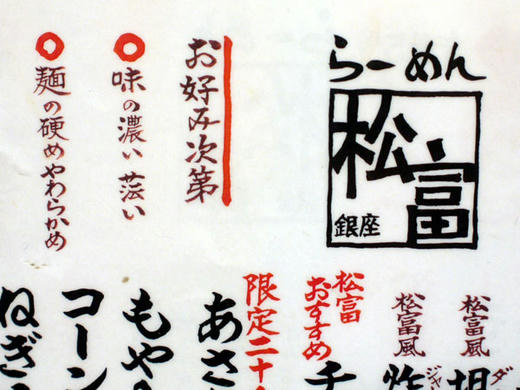 らーめん
松富
銀座
お好み次第
味の濃い 薄い
麺の硬めやわらかめ
松富風
松富風
松富
おすすめ
チ
限定二十
あさ
もや
コーン
ねぎ